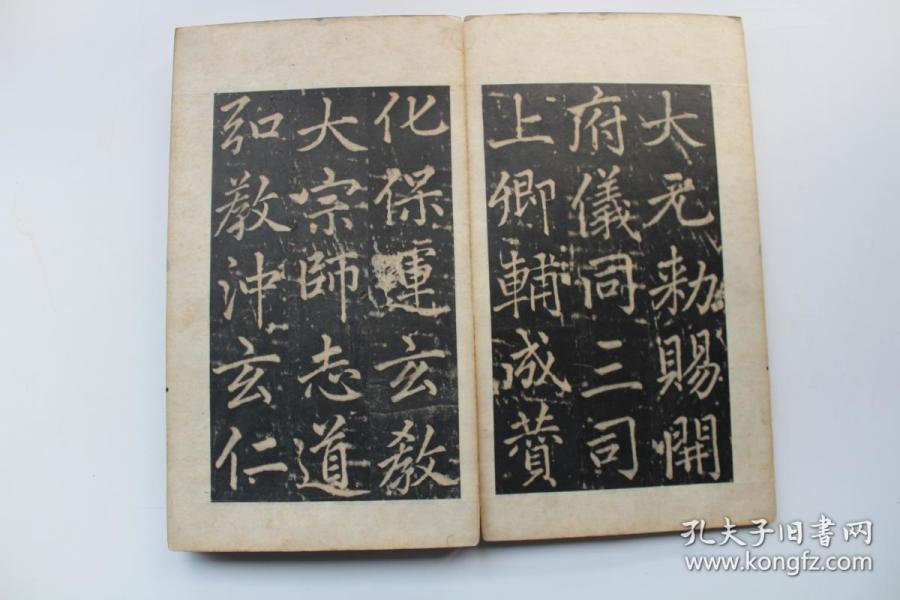 大元勑賜開
府儀同三司
上卿輔成賛
化保運玄教
大宗師志道
弘教沖玄仁
孔夫子旧書网
www.kongfz.com